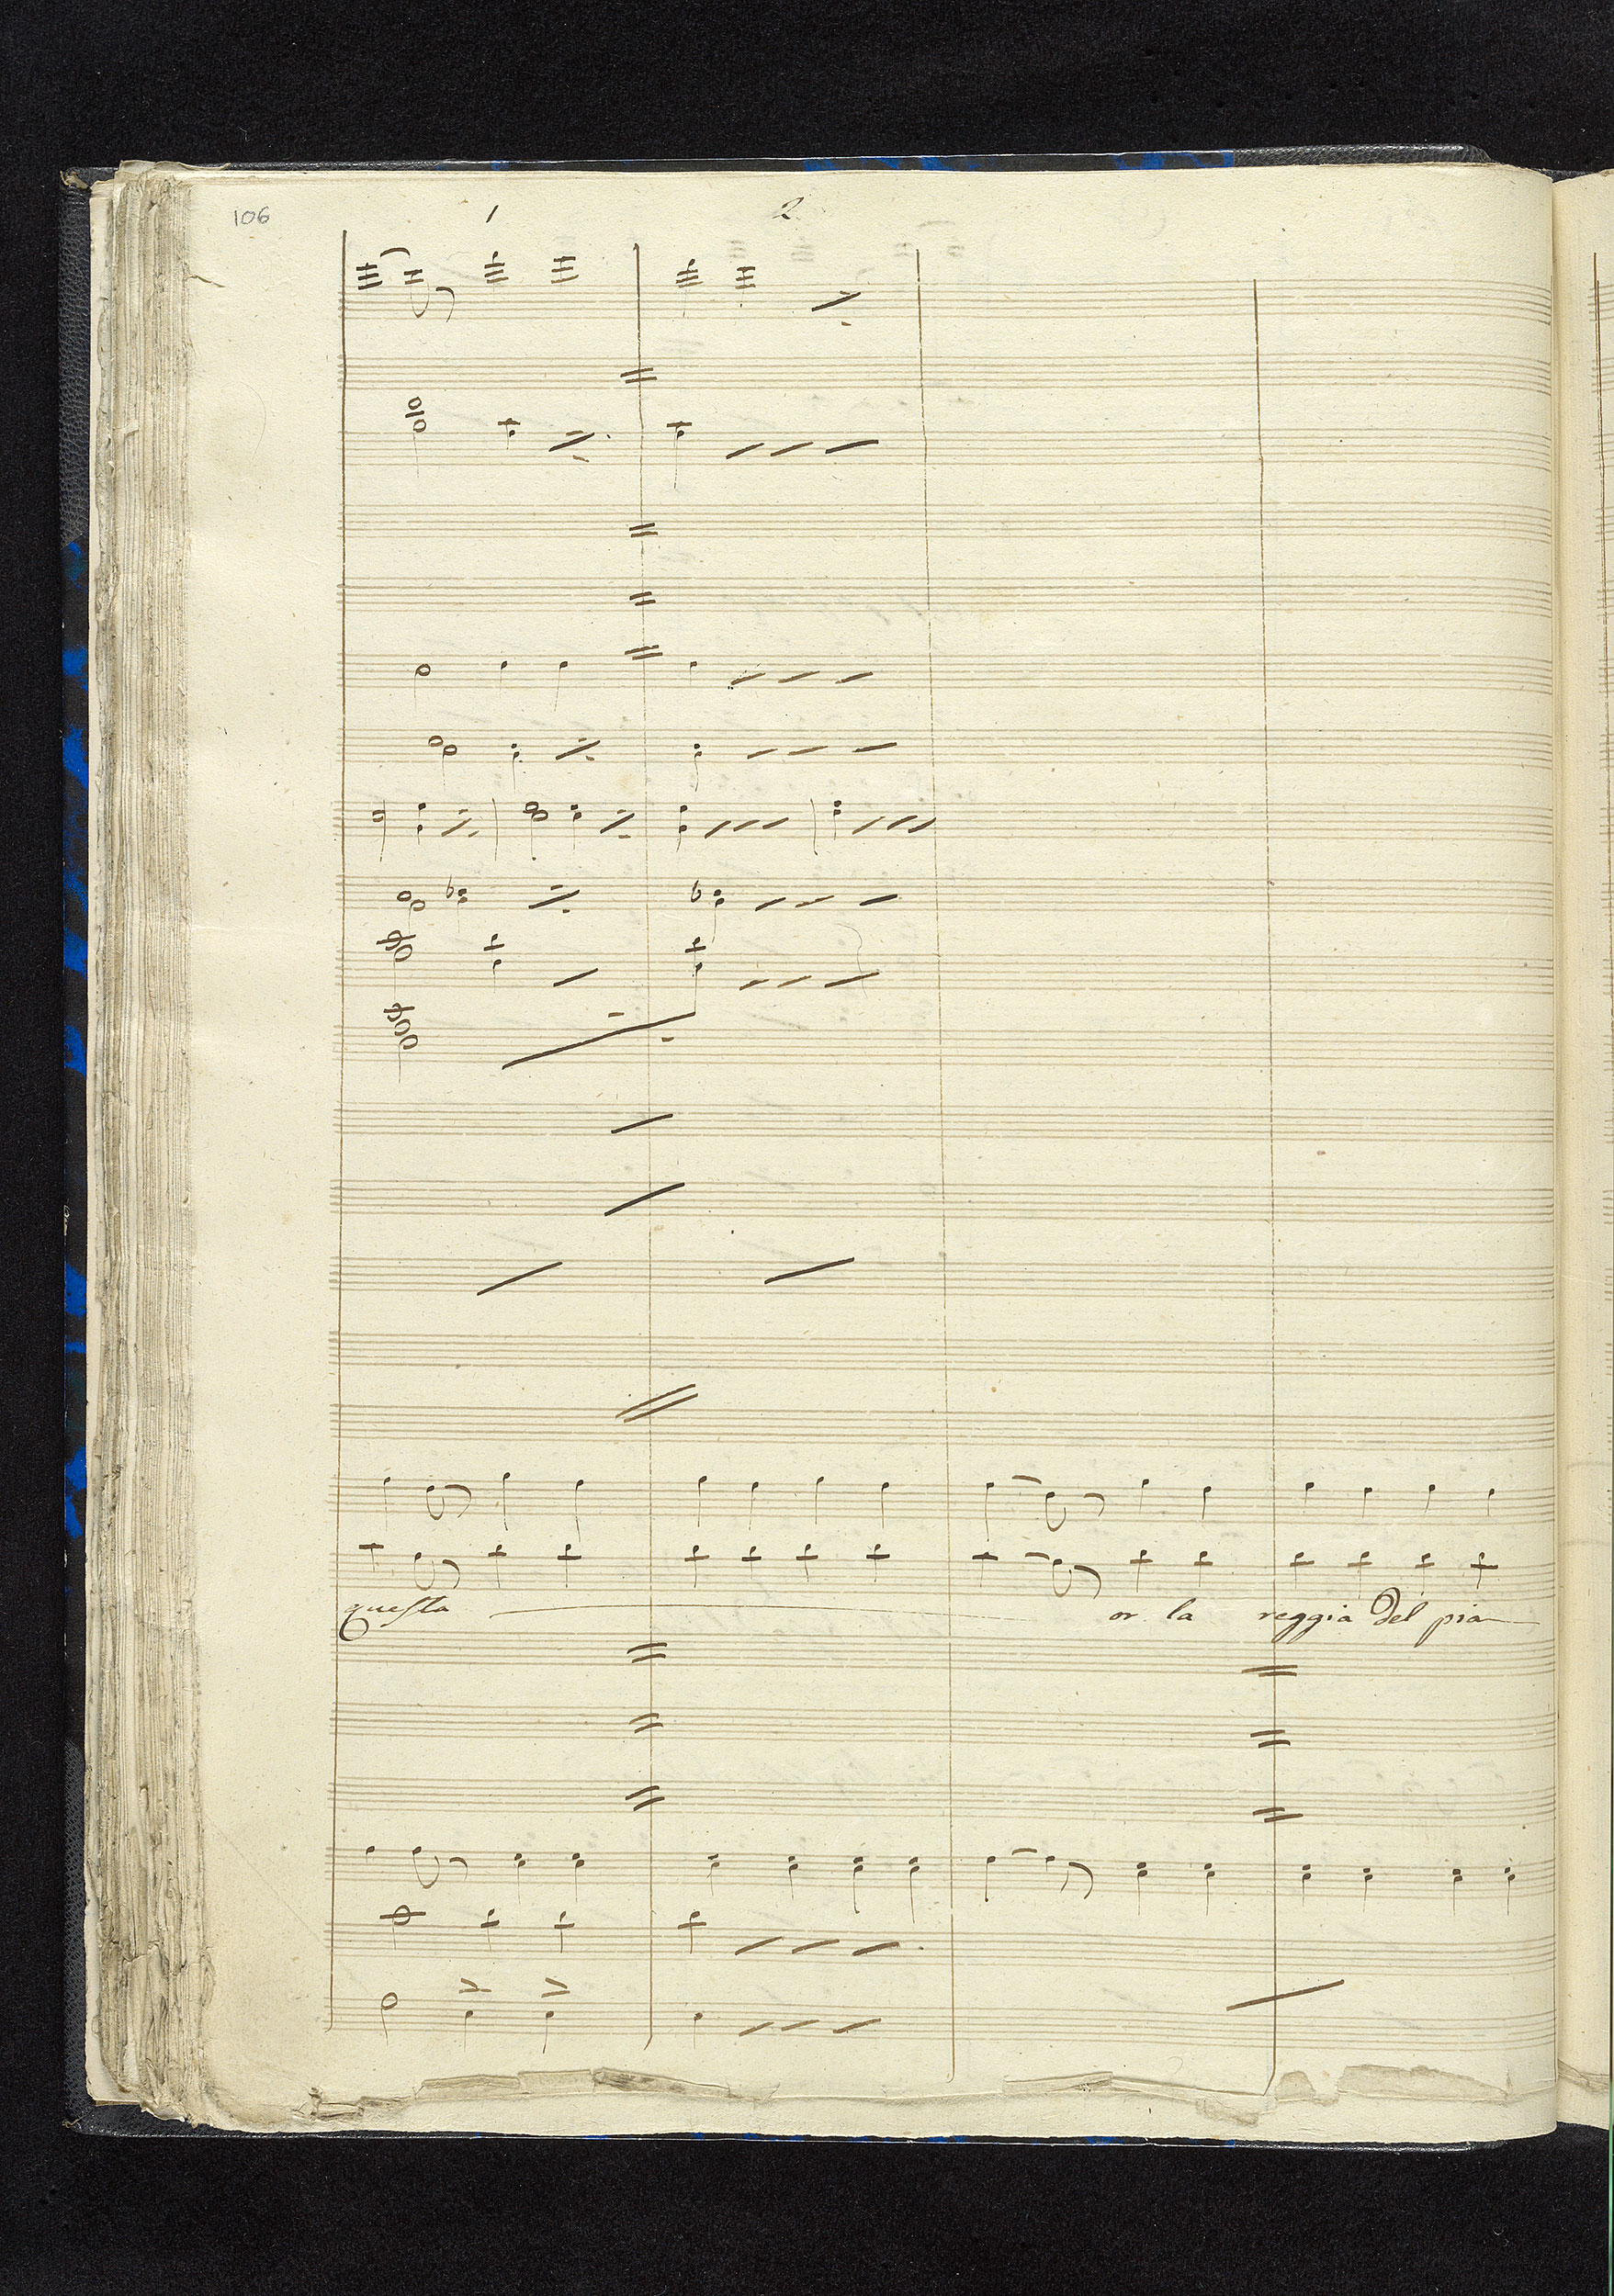 106
1 2
questa or la reggia del pian